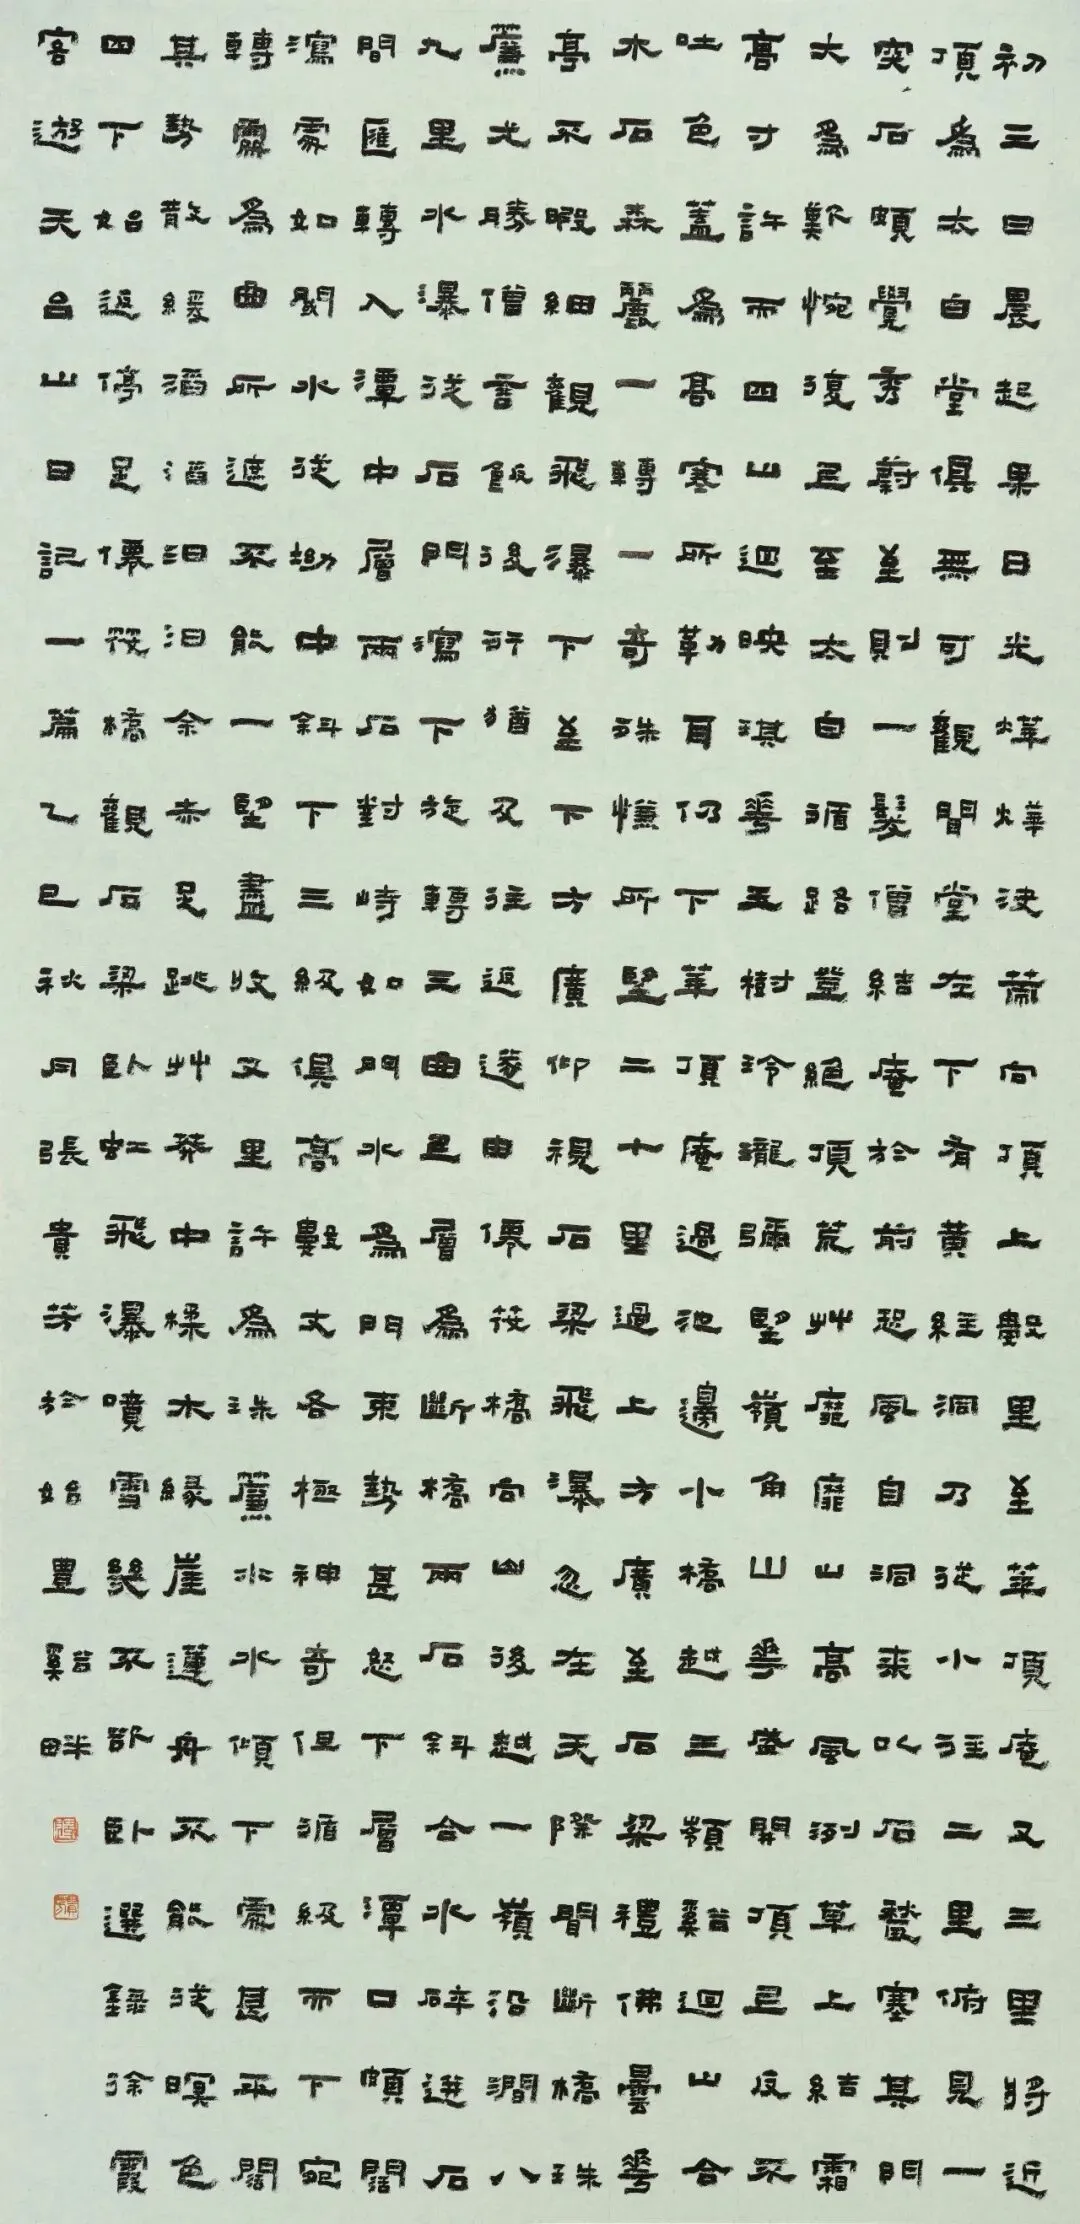 初三日晨起果日光燁燁決策向頂上數里至華頂庵又三里將近
頂為太白堂俱無可觀聞堂左下有黄經洞乃從小徑二里俯見一
突石頗覺秀蔚至則一髮僧結庵於前恐風自洞來以石甃塞其門
大為歎惋復上至太白循路登絕頂荒艸靡靡山高風冽草上結霜
高寸許而四山迴映淇花玉樹泠瓏彌望嶺角山花盛開頂上反不
吐色蓋為高寒所勒耳仍下華頂庵過池邊小橋越三嶺谿迴山合
木石森麗一轉一奇殊慊所望二十里過上方廣至石梁禮佛曇花
亭不暇細觀飛瀑下至下方廣仰視石梁飛瀑忽在天際聞斷橋珠
簾尤勝僧言飯後行猶及往返遂由僊筏橋向山後越一嶺沿澗八
九里水瀑從石門瀉下旋轉三曲上層為斷橋兩石斜合水碎迸石
間匯轉入潭中層兩石對峙如門水為門束勢甚怒下層潭口頗闊
瀉處如閾水從坳中斜下三級俱高數丈各極神奇但循級而下宛
轉處為曲所遮不能一望盡收又里許為珠簾水水傾下處甚平闊
其勢散緩滔滔汩汩余赤足跳艸莽中楺木緣崖蓮舟不能從暝色
四下始返停足僊筏橋觀石梁臥虹飛瀑噴雪幾不欲臥選錄徐霞
客遊天台山日記一篇乙巳秋月張貴芳於始豐谿畔